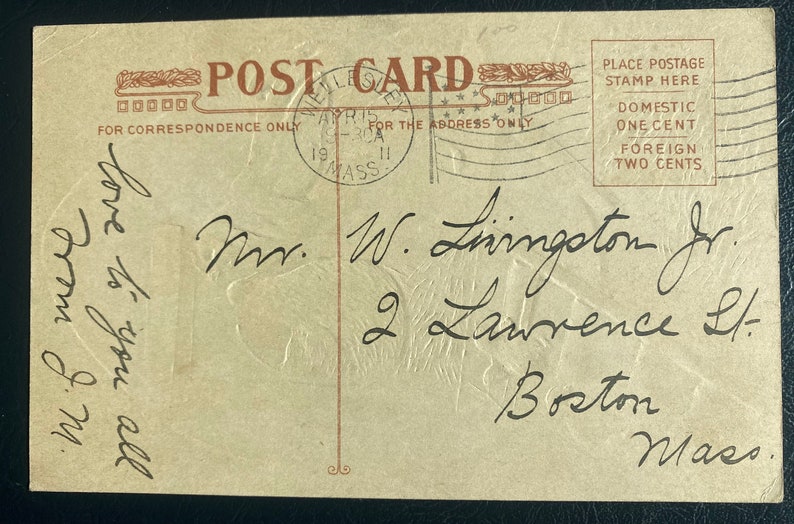 100
POST CARD
PLACE POSTAGE
STAMP HERE
DOMESTIC
ONE CENT
FOREIGN
TWO CENTS
FOR CORRESPONDENCE ONLY
FOR THE ADDRESS ONLY
WELLESLEY
APR 15
9-30A
19 11
MASS.
love to you all
from
J. M.
Mr. W. Livingston Jr.
2 Lawrence St.
Boston
Mass.